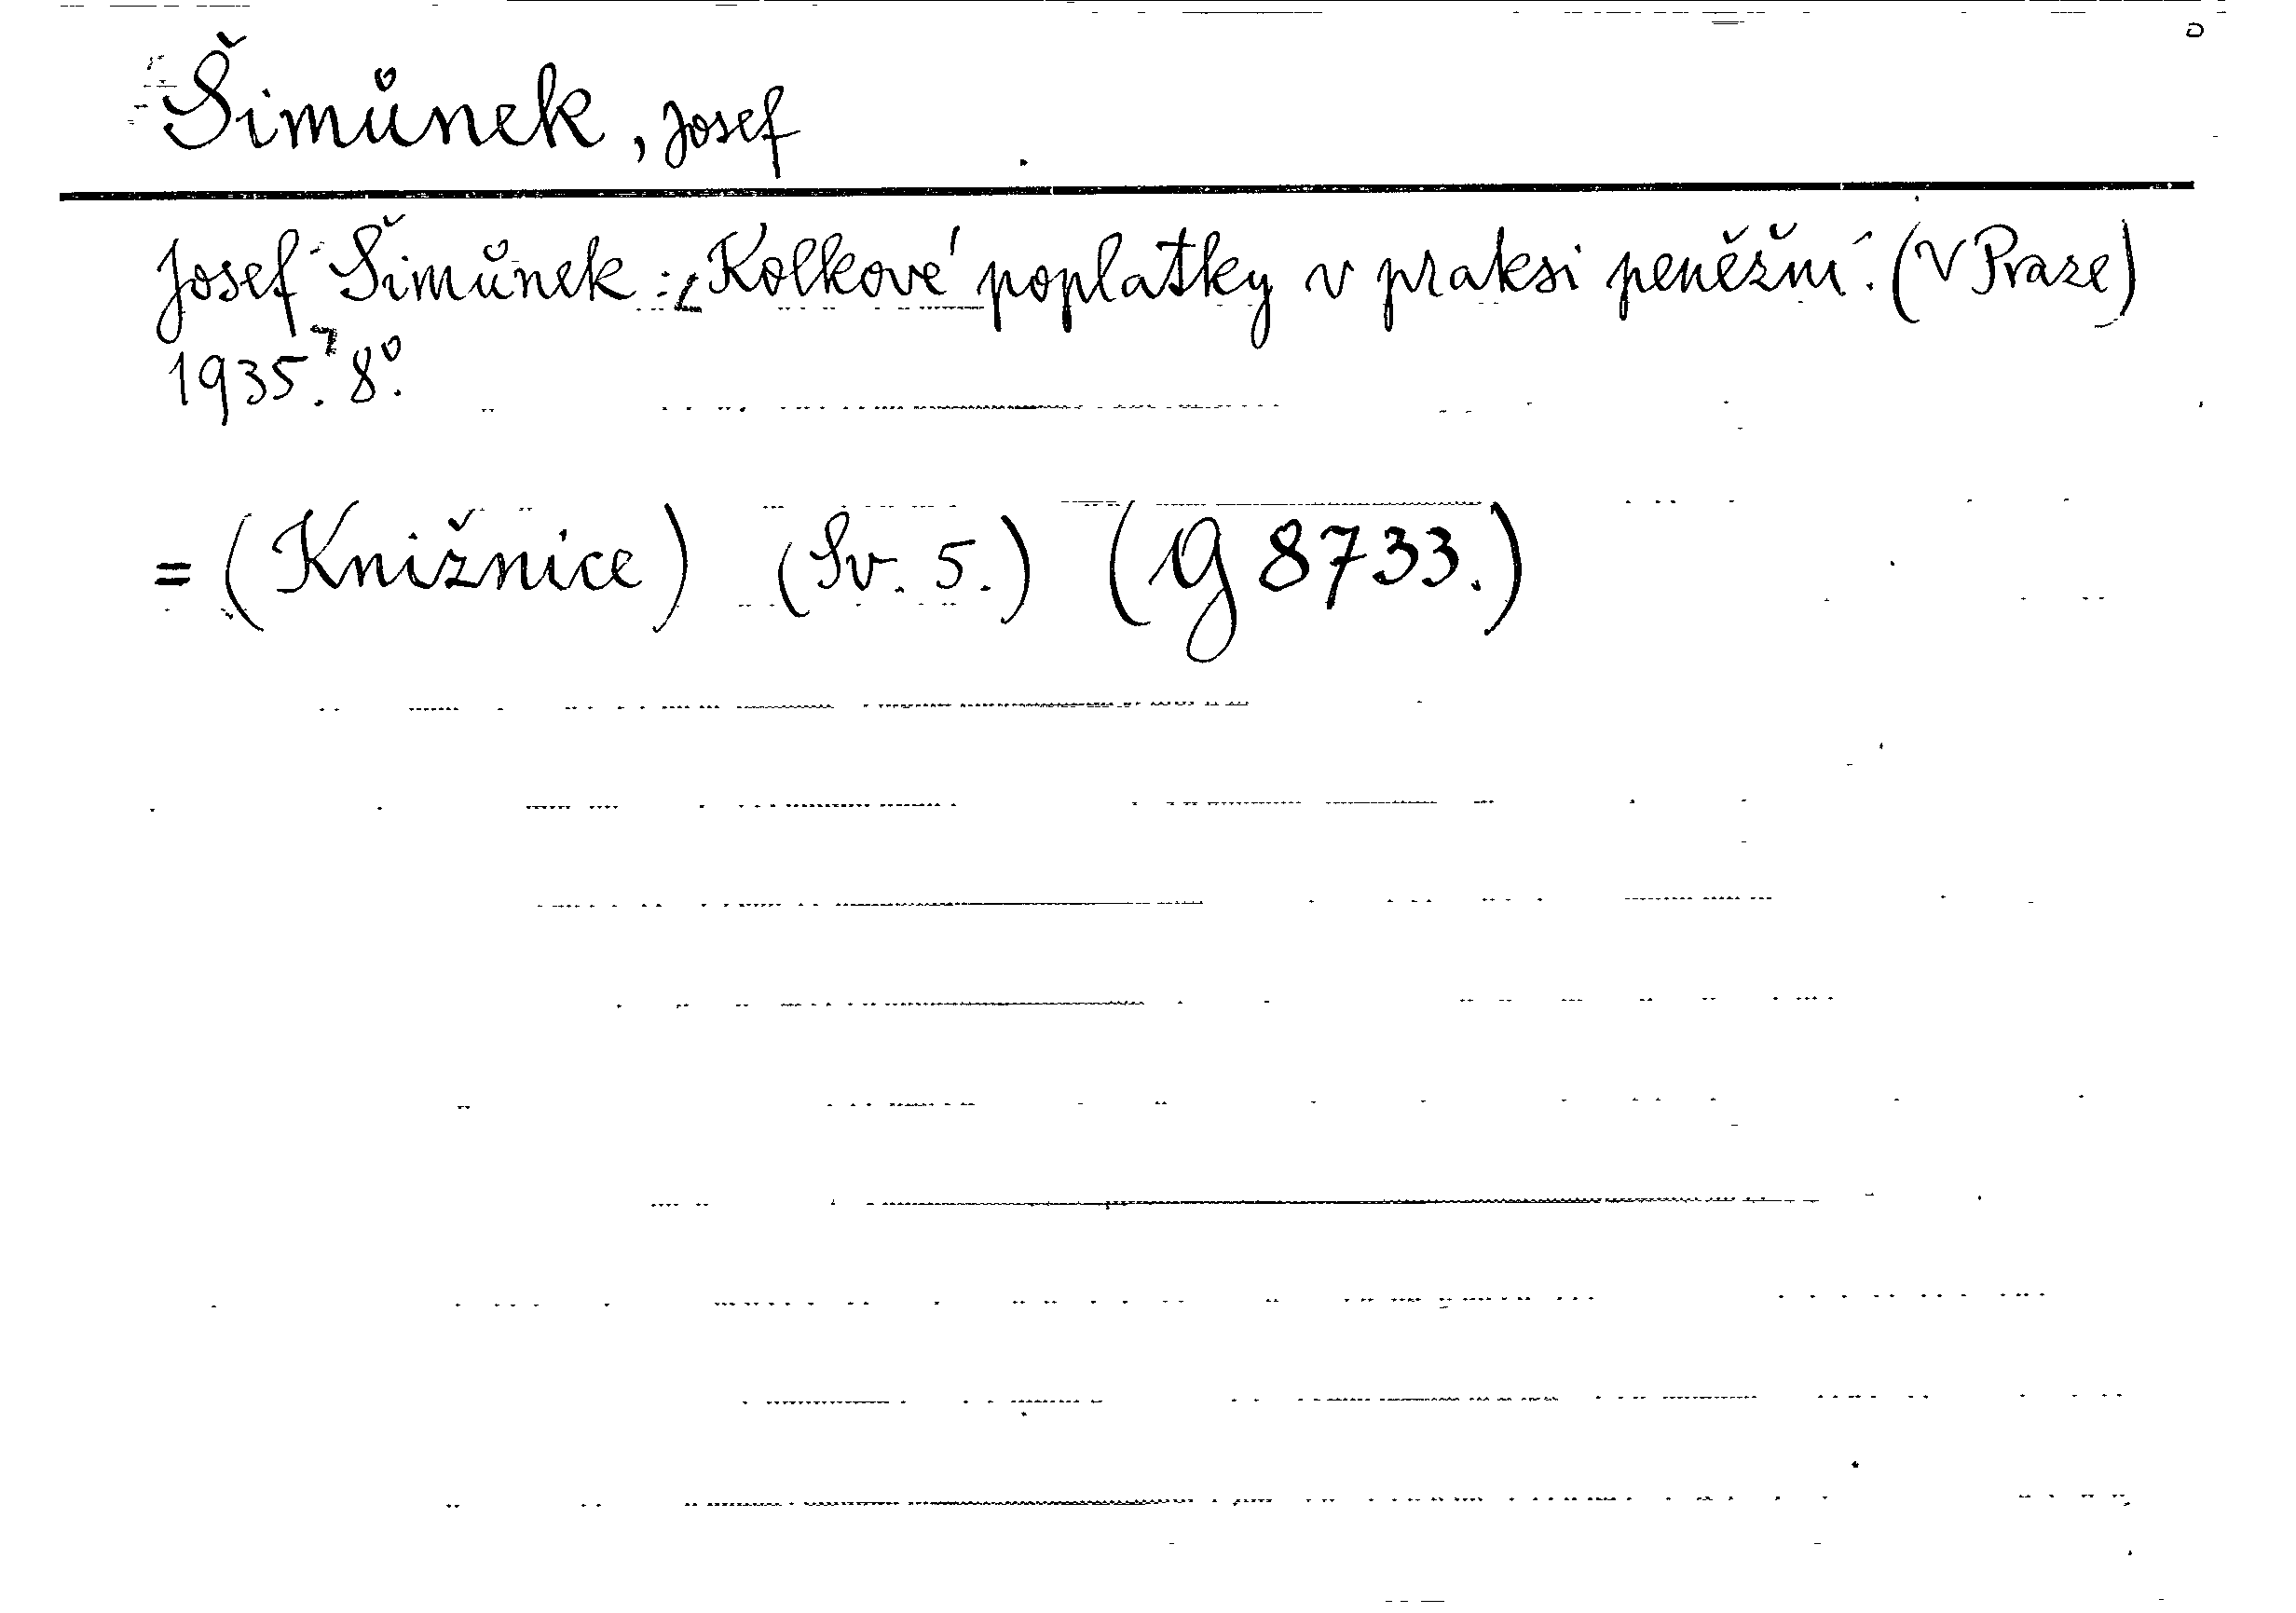 Šimůnek, Josef
Josef Šimůnek: ⌊Kolkové poplatky v praksi peněžní. (V Praze)
1935.⌉ 8⁰.
= (Knižnice) (Sv. 5.) (G 8733.)